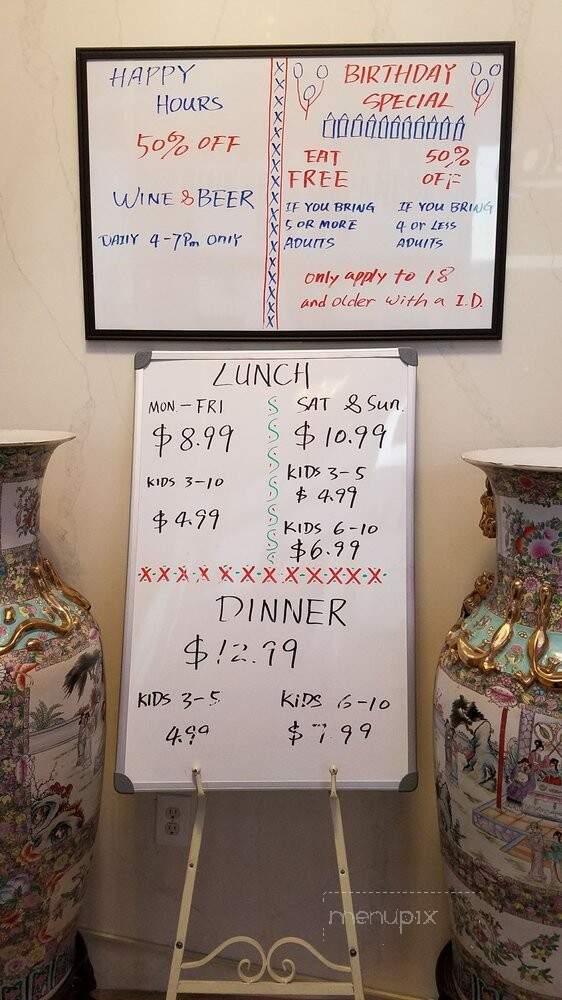 HAPPY
HOURS
50% OFF
WINE & BEER
DAILY 4-7Pm ONlY
BIRTHDAY
SPECIAL
EAT
FREE
IF YOU BRING
5 OR MORE
ADUlTS
50%
OFF
IF YOU BRING
4 Or LESS
ADUlTS
Only apply to 18
and older with a I.D.
LUNCH
MON.-FRI
$8.99
KIDS 3-10
$4.99
SAT & Sun.
$10.99
KIDS 3-5
$4.99
KIDS 6-10
$6.99
DINNER
$12.99
KIDS 3-5
4.99
KiDS 6-10
$7.99
menupix